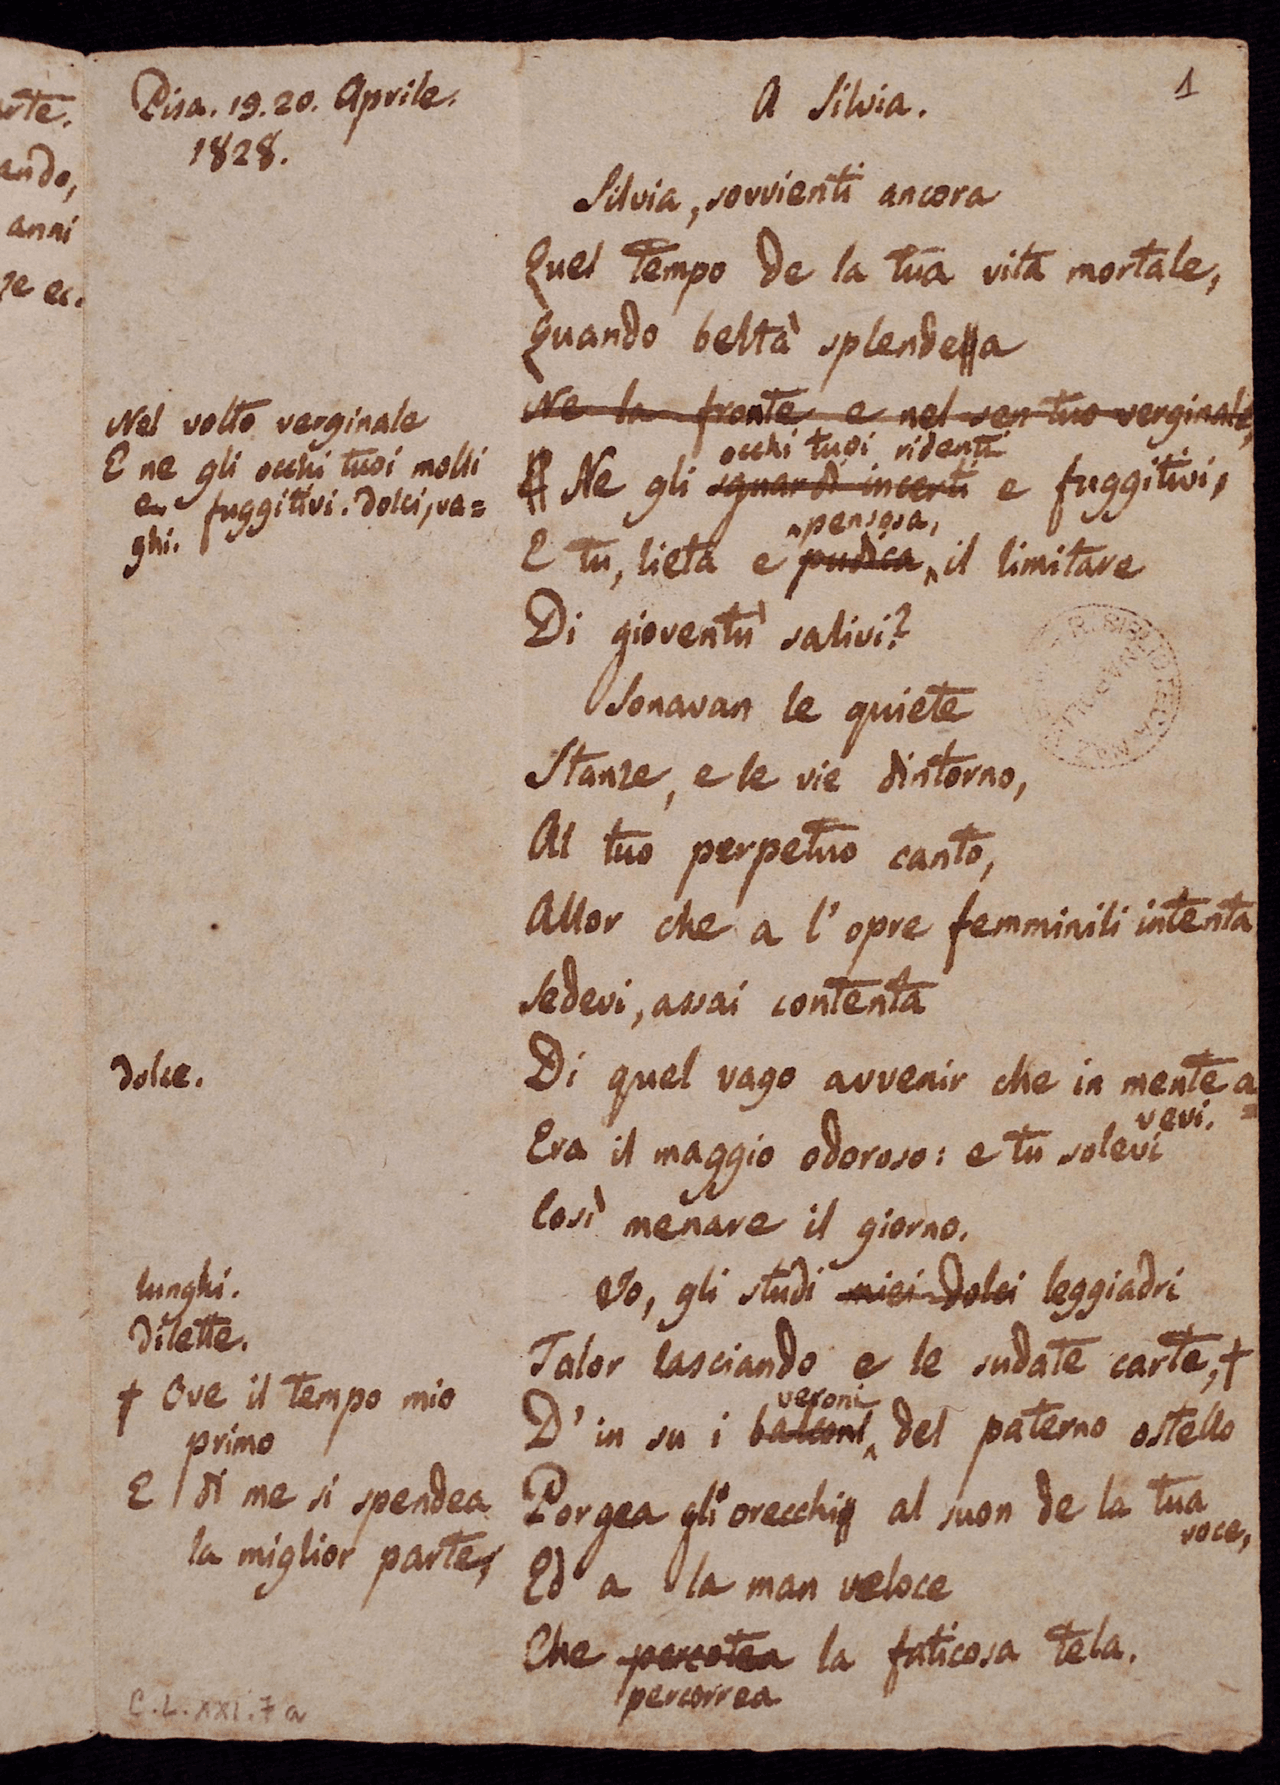 Pisa. 19. 20. Aprile.
1828.
A Silvia.
1
Silvia, sovvienti ancora
Quel tempo de la tua vita mortale,
Quando beltà splendea
Ne la fronte e nel sen tuo verginale,
occhi tuoi ridenti
Ne gli sguardi incerti e fuggitivi,
pensosa,
E tu, lieta e pudica, il limitare
Di gioventù salivi?
Sonavan le quiete
Stanze, e le vie dintorno,
Al tuo perpetuo canto,
Allor che a l' opre femminili intenta
Sedevi, assai contenta
Di quel vago avvenir che in mente a=
vevi.
Era il maggio odoroso: e tu solevi
Così menare il giorno.
Io, gli studi miei dolci leggiadri
Talor lasciando e le sudate carte, †
veroni
D' in su i balconi del paterno ostello
Porgea gli orecchi al suon de la tua
voce,
Ed a la man veloce
Che percotea la faticosa tela.
percorrea
Nel volto verginale
E ne gli occhi tuoi molli
e fuggitivi. dolci, va=
ghi.
dolce.
lunghi.
dilette.
† Ove il tempo mio
primo
E di me si spendea
la miglior parte,
C.L.XXI.7a
arte.
ando,
anni
ze ec.